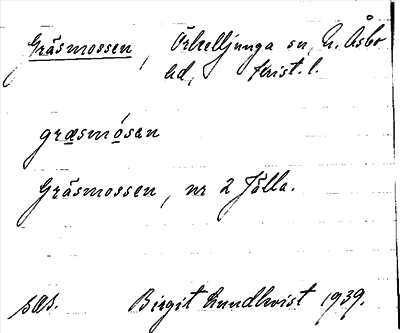 Gräsmossen, Örkelljunga sn, N. Åsbo
hd, Krist. l.
græsmósan
Gräsmossen, nr 2 Fölla.
sæs. Birgit Lundkvist 1939.